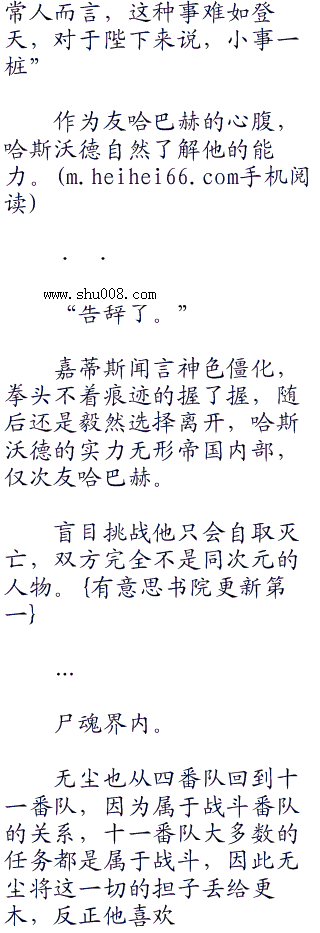 常人而言，这种事难如登
天，对于陛下来说，小事一
桩”
作为友哈巴赫的心腹，
哈斯沃德自然了解他的能
力。(m.heihei66.com手机阅
读)
． ．
www.shu008.com
“告辞了。”
嘉蒂斯闻言神色僵化，
拳头不着痕迹的握了握，随
后还是毅然选择离开，哈斯
沃德的实力无形帝国内部，
仅次友哈巴赫。
盲目挑战他只会自取灭
亡，双方完全不是同次元的
人物。{有意思书院更新第
一}
…
尸魂界内。
无尘也从四番队回到十
一番队，因为属于战斗番队
的关系，十一番队大多数的
任务都是属于战斗，因此无
尘将这一切的担子丢给更
木，反正他喜欢